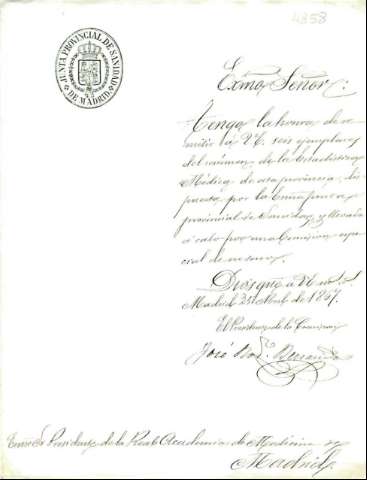 4358
JUNTA PROVINCIAL DE SANIDAD
DE MADRID.
Exmo Señor:
Tengo la honra de re
mitir á V.E. seis ejemplares
del resúmen de la Estadistica
Médica de esa provincia, dis
puesta por la Junta
provincial de Sanidad, y llevada
á cabo por una Comision espe
cial de su seno.
Dios gue á V.E. m. a.
Madrid 25 de 1857.
El Presidente de la Comision
José
Exmo Sr Presidente de la Real Academia de Medicina
Madrid